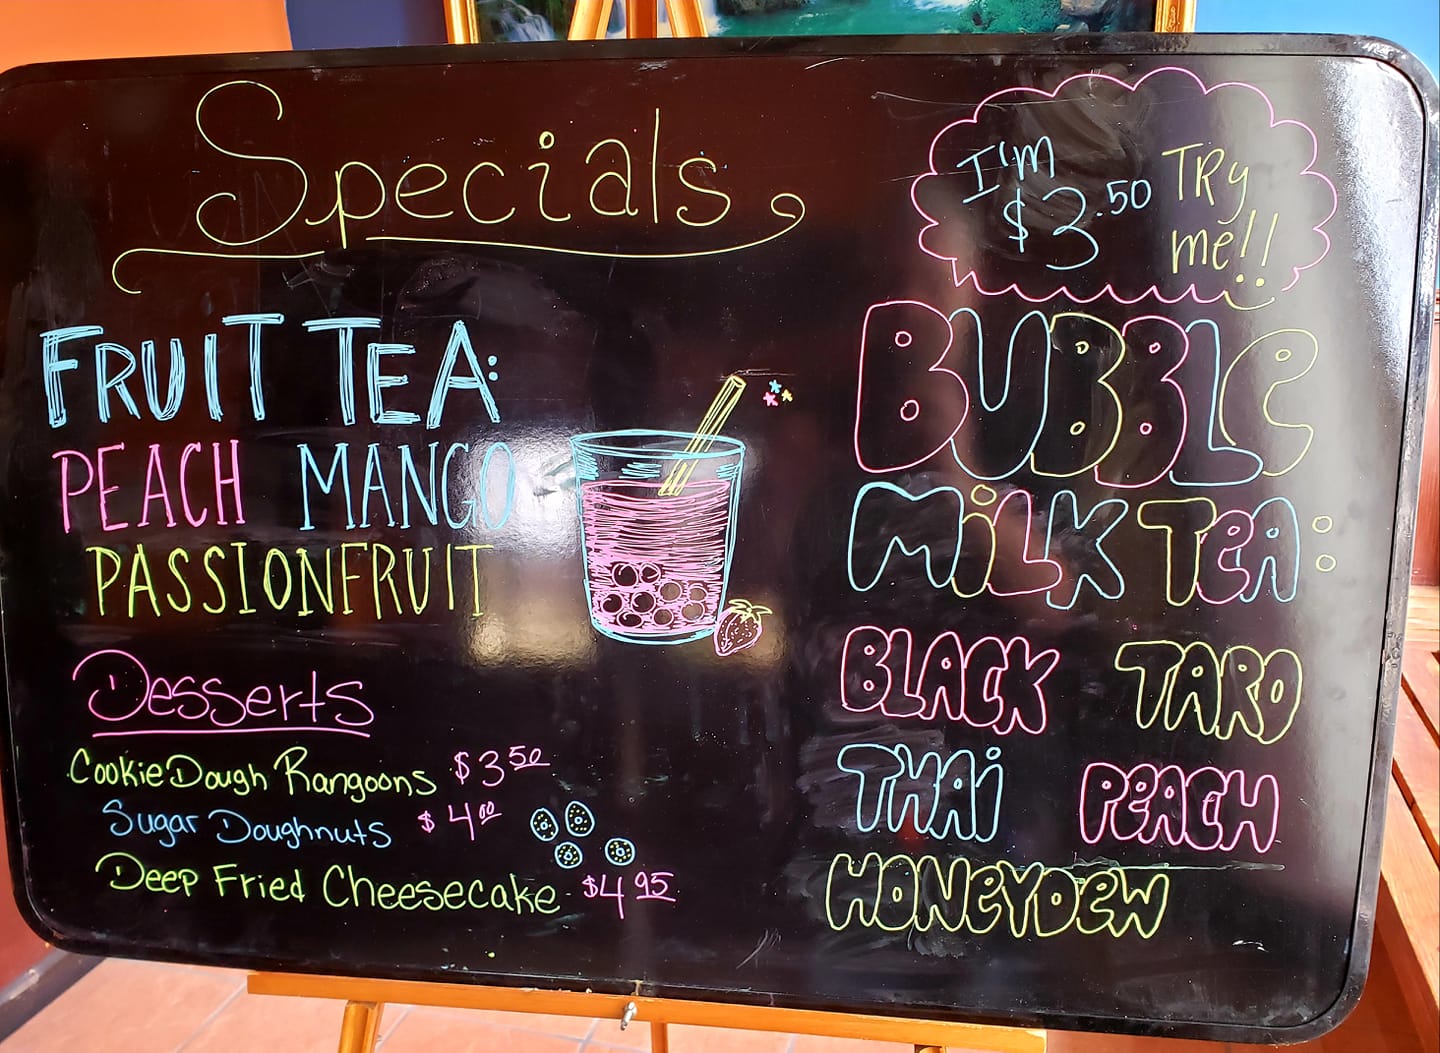 Specials
FRUIT TEA:
PEACH MANGO
PASSIONFRUIT
Desserts
Cookie Dough Rangoons $3.50
Sugar Doughnuts $4.00
Deep Fried Cheesecake $4.95
I'm $3.50
TRy me!!
BUBBLe
MiLK TeA:
BLACK TARO
THAi PeACH
HONeYDeW